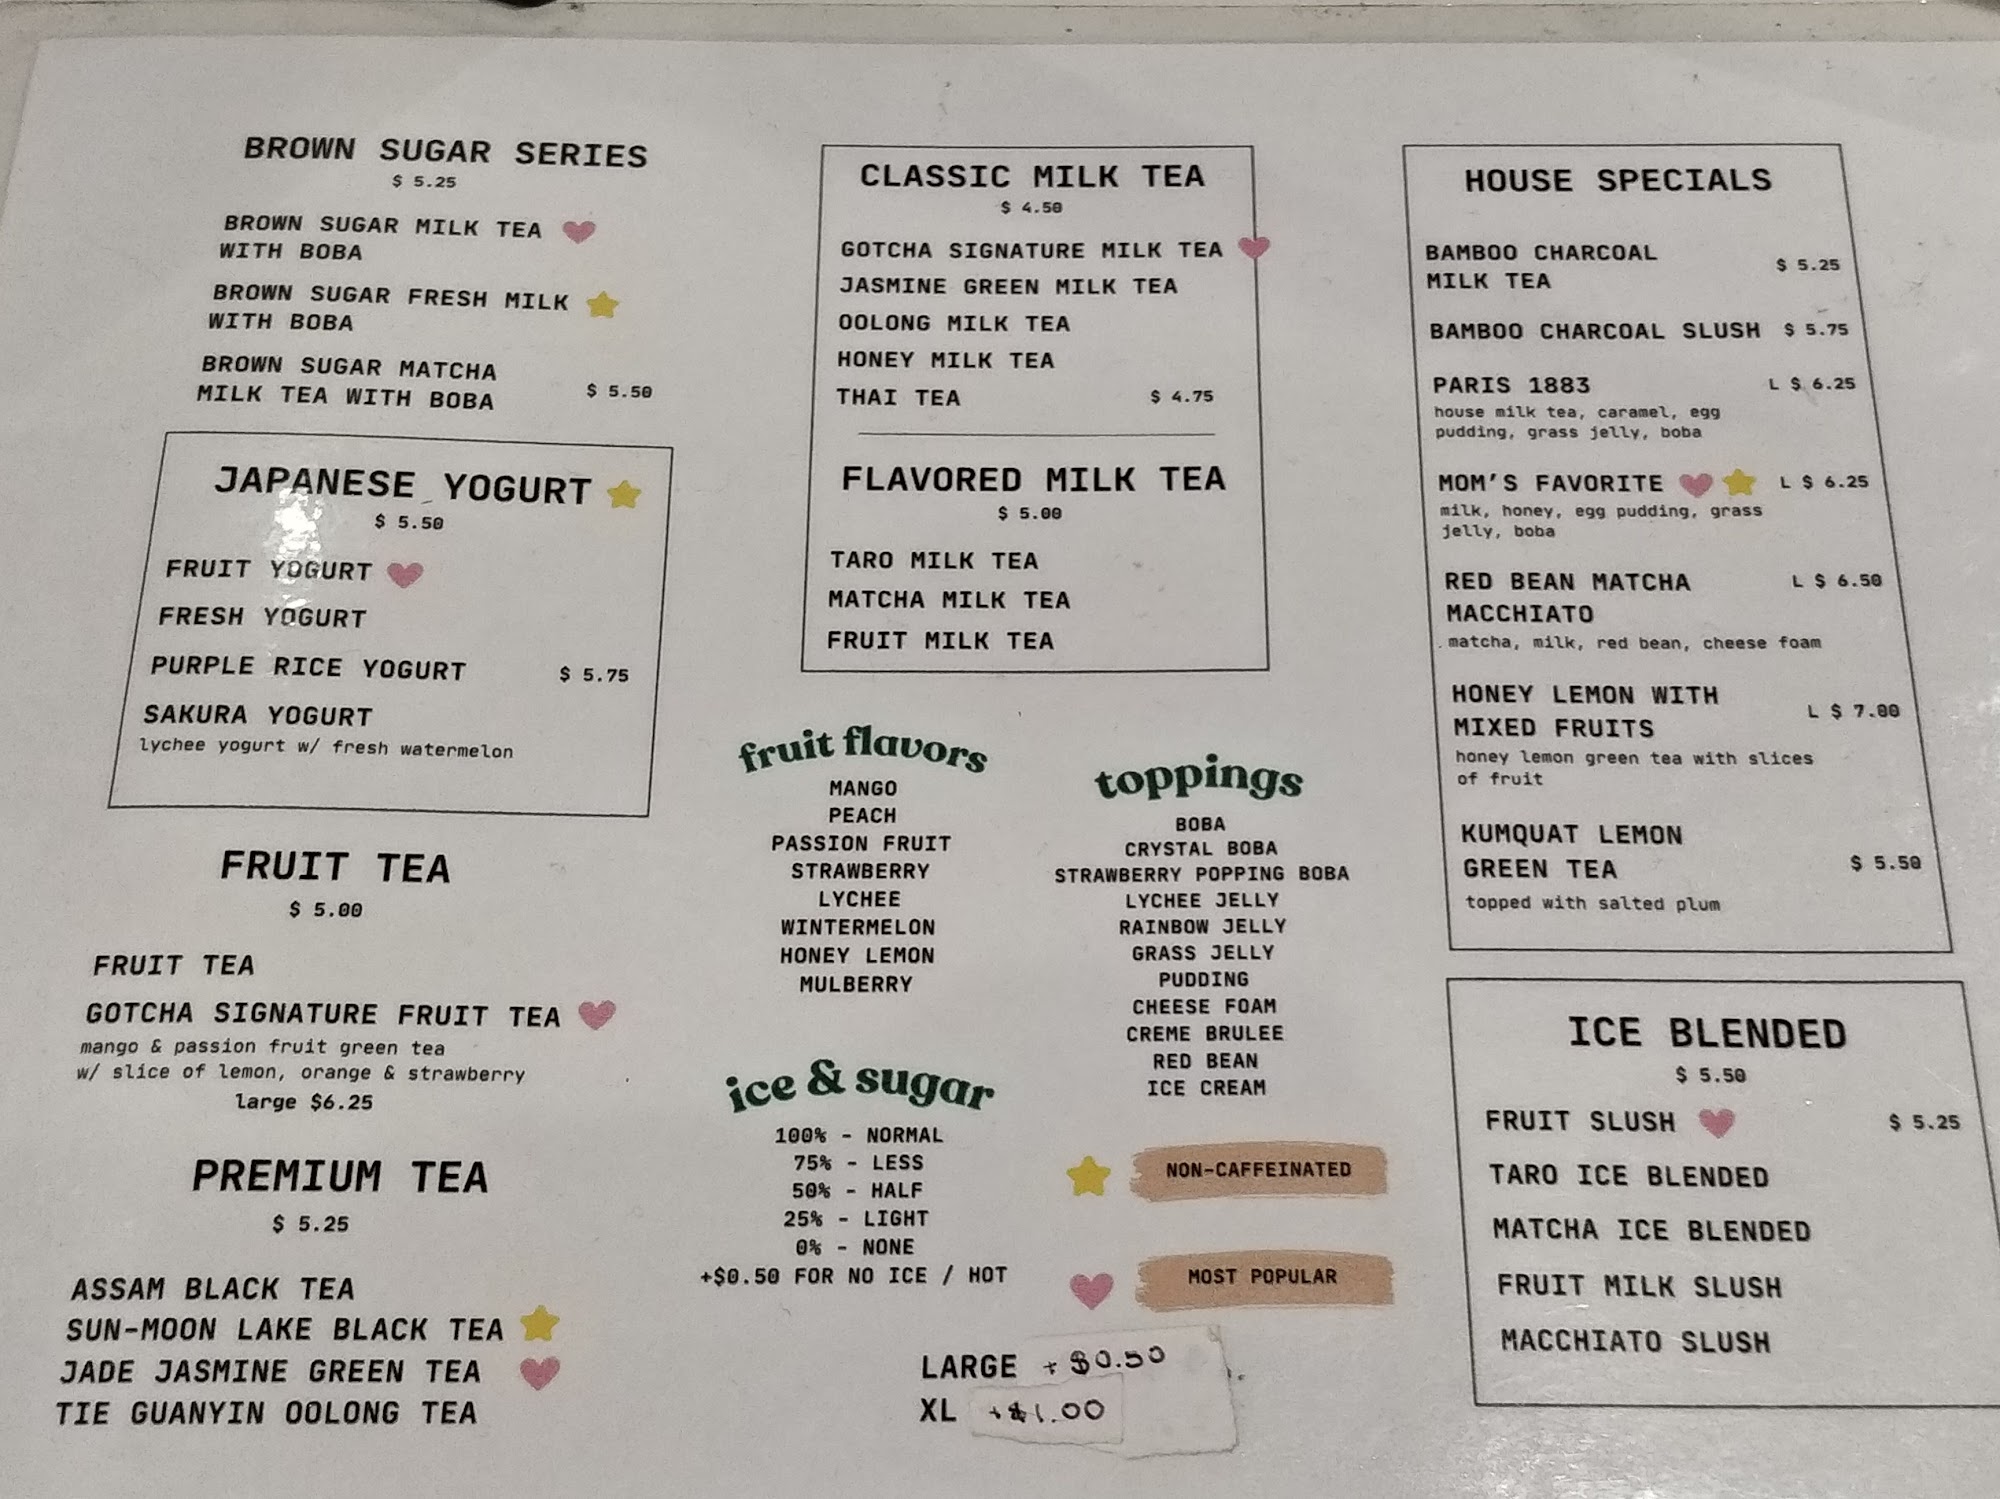 BROWN SUGAR SERIES
$ 5.25
BROWN SUGAR MILK TEA
WITH BOBA
BROWN SUGAR FRESH MILK
WITH BOBA
BROWN SUGAR MATCHA
MILK TEA WITH BOBA $ 5.50
JAPANESE YOGURT
$ 5.50
FRUIT YOGURT
FRESH YOGURT
PURPLE RICE YOGURT $ 5.75
SAKURA YOGURT
lychee yogurt w/ fresh watermelon
FRUIT TEA
$ 5.00
FRUIT TEA
GOTCHA SIGNATURE FRUIT TEA
mango & passion fruit green tea
w/ slice of lemon, orange & strawberry
large $6.25
PREMIUM TEA
$ 5.25
ASSAM BLACK TEA
SUN-MOON LAKE BLACK TEA
JADE JASMINE GREEN TEA
TIE GUANYIN OOLONG TEA
CLASSIC MILK TEA
$ 4.50
GOTCHA SIGNATURE MILK TEA
JASMINE GREEN MILK TEA
OOLONG MILK TEA
HONEY MILK TEA
THAI TEA $ 4.75
FLAVORED MILK TEA
$ 5.00
TARO MILK TEA
MATCHA MILK TEA
FRUIT MILK TEA
fruit flavors
MANGO
PEACH
PASSION FRUIT
STRAWBERRY
LYCHEE
WINTERMELON
HONEY LEMON
MULBERRY
ice & sugar
100% - NORMAL
75% - LESS
50% - HALF
25% - LIGHT
0% - NONE
+$0.50 FOR NO ICE / HOT
toppings
BOBA
CRYSTAL BOBA
STRAWBERRY POPPING BOBA
LYCHEE JELLY
RAINBOW JELLY
GRASS JELLY
PUDDING
CHEESE FOAM
CREME BRULEE
RED BEAN
ICE CREAM
NON-CAFFEINATED
MOST POPULAR
LARGE + $0.50
XL +$1.00
HOUSE SPECIALS
BAMBOO CHARCOAL
MILK TEA $ 5.25
BAMBOO CHARCOAL SLUSH $ 5.75
PARIS 1883 L $ 6.25
house milk tea, caramel, egg
pudding, grass jelly, boba
MOM'S FAVORITE L $ 6.25
milk, honey, egg pudding, grass
jelly, boba
RED BEAN MATCHA L $ 6.50
MACCHIATO
matcha, milk, red bean, cheese foam
HONEY LEMON WITH
MIXED FRUITS L $ 7.00
honey lemon green tea with slices
of fruit
KUMQUAT LEMON
GREEN TEA $ 5.50
topped with salted plum
ICE BLENDED
$ 5.50
FRUIT SLUSH $ 5.25
TARO ICE BLENDED
MATCHA ICE BLENDED
FRUIT MILK SLUSH
MACCHIATO SLUSH